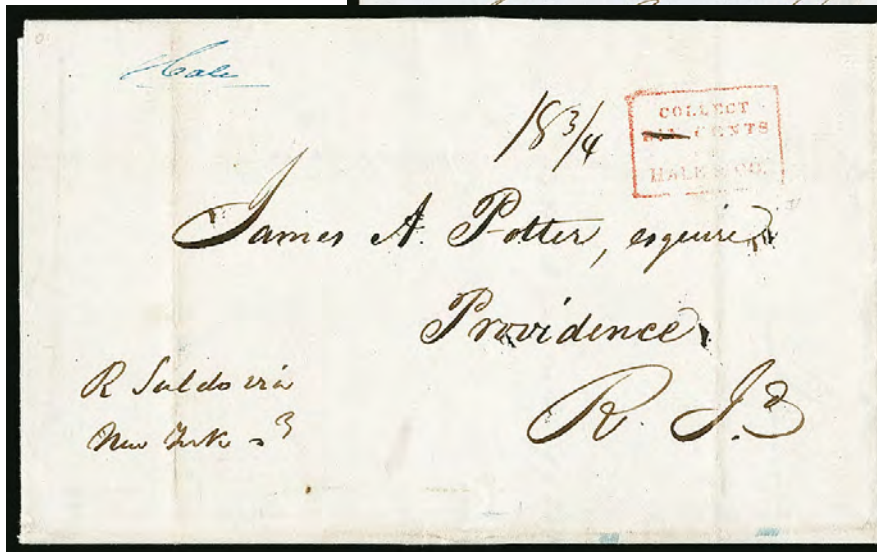 Hale
18 3/4
COLLECT
CENTS
HALE & CO.
James A. Potter, esquire
Providence
R. I.
R
New York